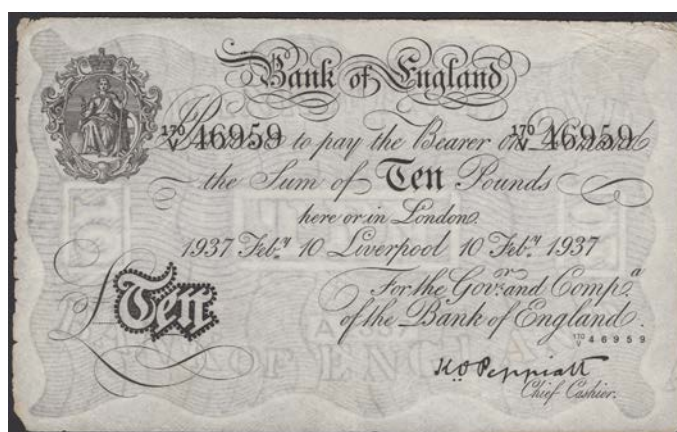 Bank of England
170/V 46959 to pay the Bearer on Demand 170/V 46959
the Sum of Ten Pounds
here or in London.
1937 Feb.y 10 Liverpool 10 Feb.y 1937
For the Gov.r and Comp.a
of the Bank of England.
170/V 46959
£Ten
K.O. Peppiatt
Chief Cashier.